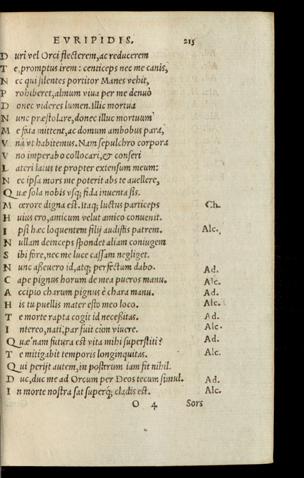 EVRIPIDIS. 215
D uri vel Orci flecterem, ac reducerem
T e, promptus irem: centiceps nec me canis,
N ec qui silentes portitor Manes vehit,
P rohiberet, almum viua per me denuò
D onec videres lumen. Illic mortua
N unc præstolare, donec illuc mortuum
M e fata mittent, ac domum ambobus para,
V nà vt habitemus. Nam sepulchro corpora
V no imperabo collocari, & conseri
L ateri latus te propter extensum meum:
N ec ipsa mors me poterit abs te auellere,
Q uæ sola nobis vsq; fida inuenta sis.
M œrore digna est. itaq; luctus particeps Ch.
H uius ero, amicum velut amico conuenit.
I psi hæc loquentem filij audistis patrem. Alc.
N ullam deinceps spondet aliam coniugem
S ibi fore, nec me luce cassam negliget.
N unc assuero id, atq; perfectum dabo. Ad.
C ape pignus horum de mea pueros manu. Alc.
A ccipio charum pignus è chara manu. Ad.
H is tu puellis mater esto meo loco. Alc.
T e morte rapta cogit id necessitas. Ad.
I ntereo, nati, par fuit cion viuere. Alc.
Q uæ nam futura est vita mihi superstiti? Ad.
T e mitigabit temporis longinquitas. Alc.
Q ui perijt autem, in postrum iam fit nihil.
D uc, duc me ad Orcum per Deos tecum simul. Ad.
I n morte nostra sat superq; cladis est. Alc.
O 4 Sors